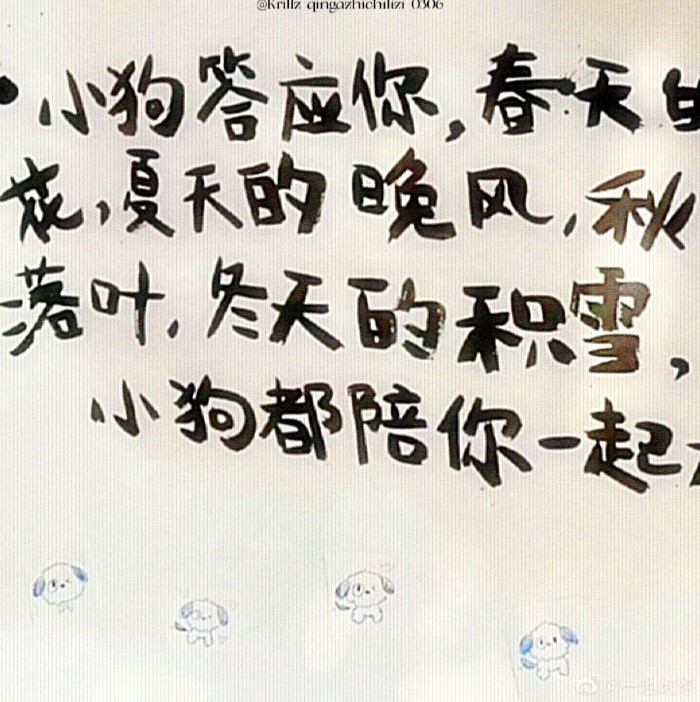 @Krillz qingazhichilizi 0306
小狗答应你,春天
花,夏天的晚风,秋
落叶,冬天的积雪,
小狗都陪你一起